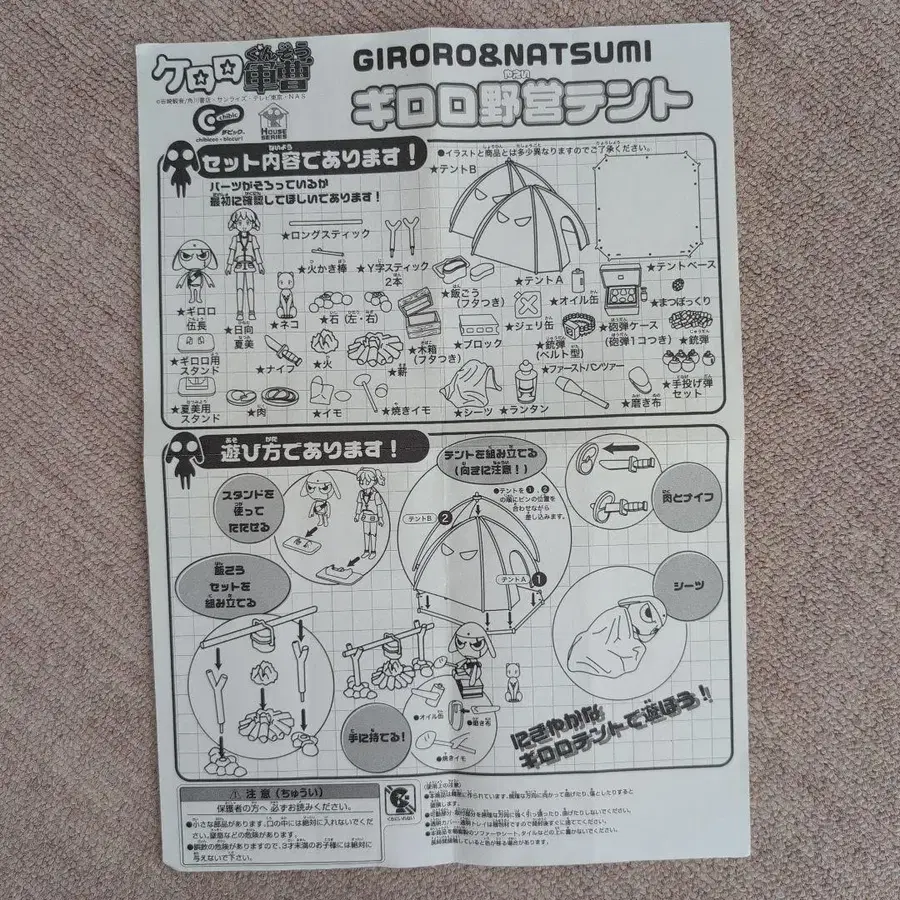 ケロロ軍曹
ぐんそう
GIRORO&NATSUMI
やえい
ギロロ野営テント
©吉崎観音/角川書店・サンライズ・テレビ東京・NAS
chibic
チビック
HOUSE SERIES
ないよう
セット内容であります!
●イラストと商品とは多少異なりますのでご了承ください。
パーツがそろっているか
最初に確認してほしいであります!
★テントB
★ロングスティック
★火かき棒
★Y字スティック
2本
★飯ごう
(フタつき)
★テントA
★オイル缶
★テントベース
★まつぼっくり
★ギロロ
伍長
★日向
夏美
★ネコ
★石(左・右)
★木箱
(フタつき)
★ブロック
★ジェリ缶
★銃弾
(ベルト型)
★砲弾ケース
(砲弾1コつき)
★銃弾
★ギロロ用
スタンド
★ナイフ
★火
★薪
★ファーストパンツァー
★手投げ弾
セット
★夏美用
スタンド
★肉
★イモ
★焼きイモ
★シーツ
★ランタン
★磨き布
あそ
遊び方であります!
テントを組み立てる
(向きに注意!)
スタンドを
使って
たたせる
●テントを1、2
の順にピンの位置を
合わせながら
差し込みます。
テントB 2
テントA 1
肉とナイフ
飯ごう
セットを
組み立てる
シーツ
手に持てる!
●オイル缶
●磨き布
●焼きイモ
にぎやかな
ギロロテントで遊ぼう!
注意(ちゅうい)
保護者の方へ 必ずお読みください。
●小さな部品があります。口の中には絶対に入れないでくだ
さい。窒息などの危険があります。
●誤飲の危険がありますので、3才未満のお子様には絶対に
与えないで下さい。